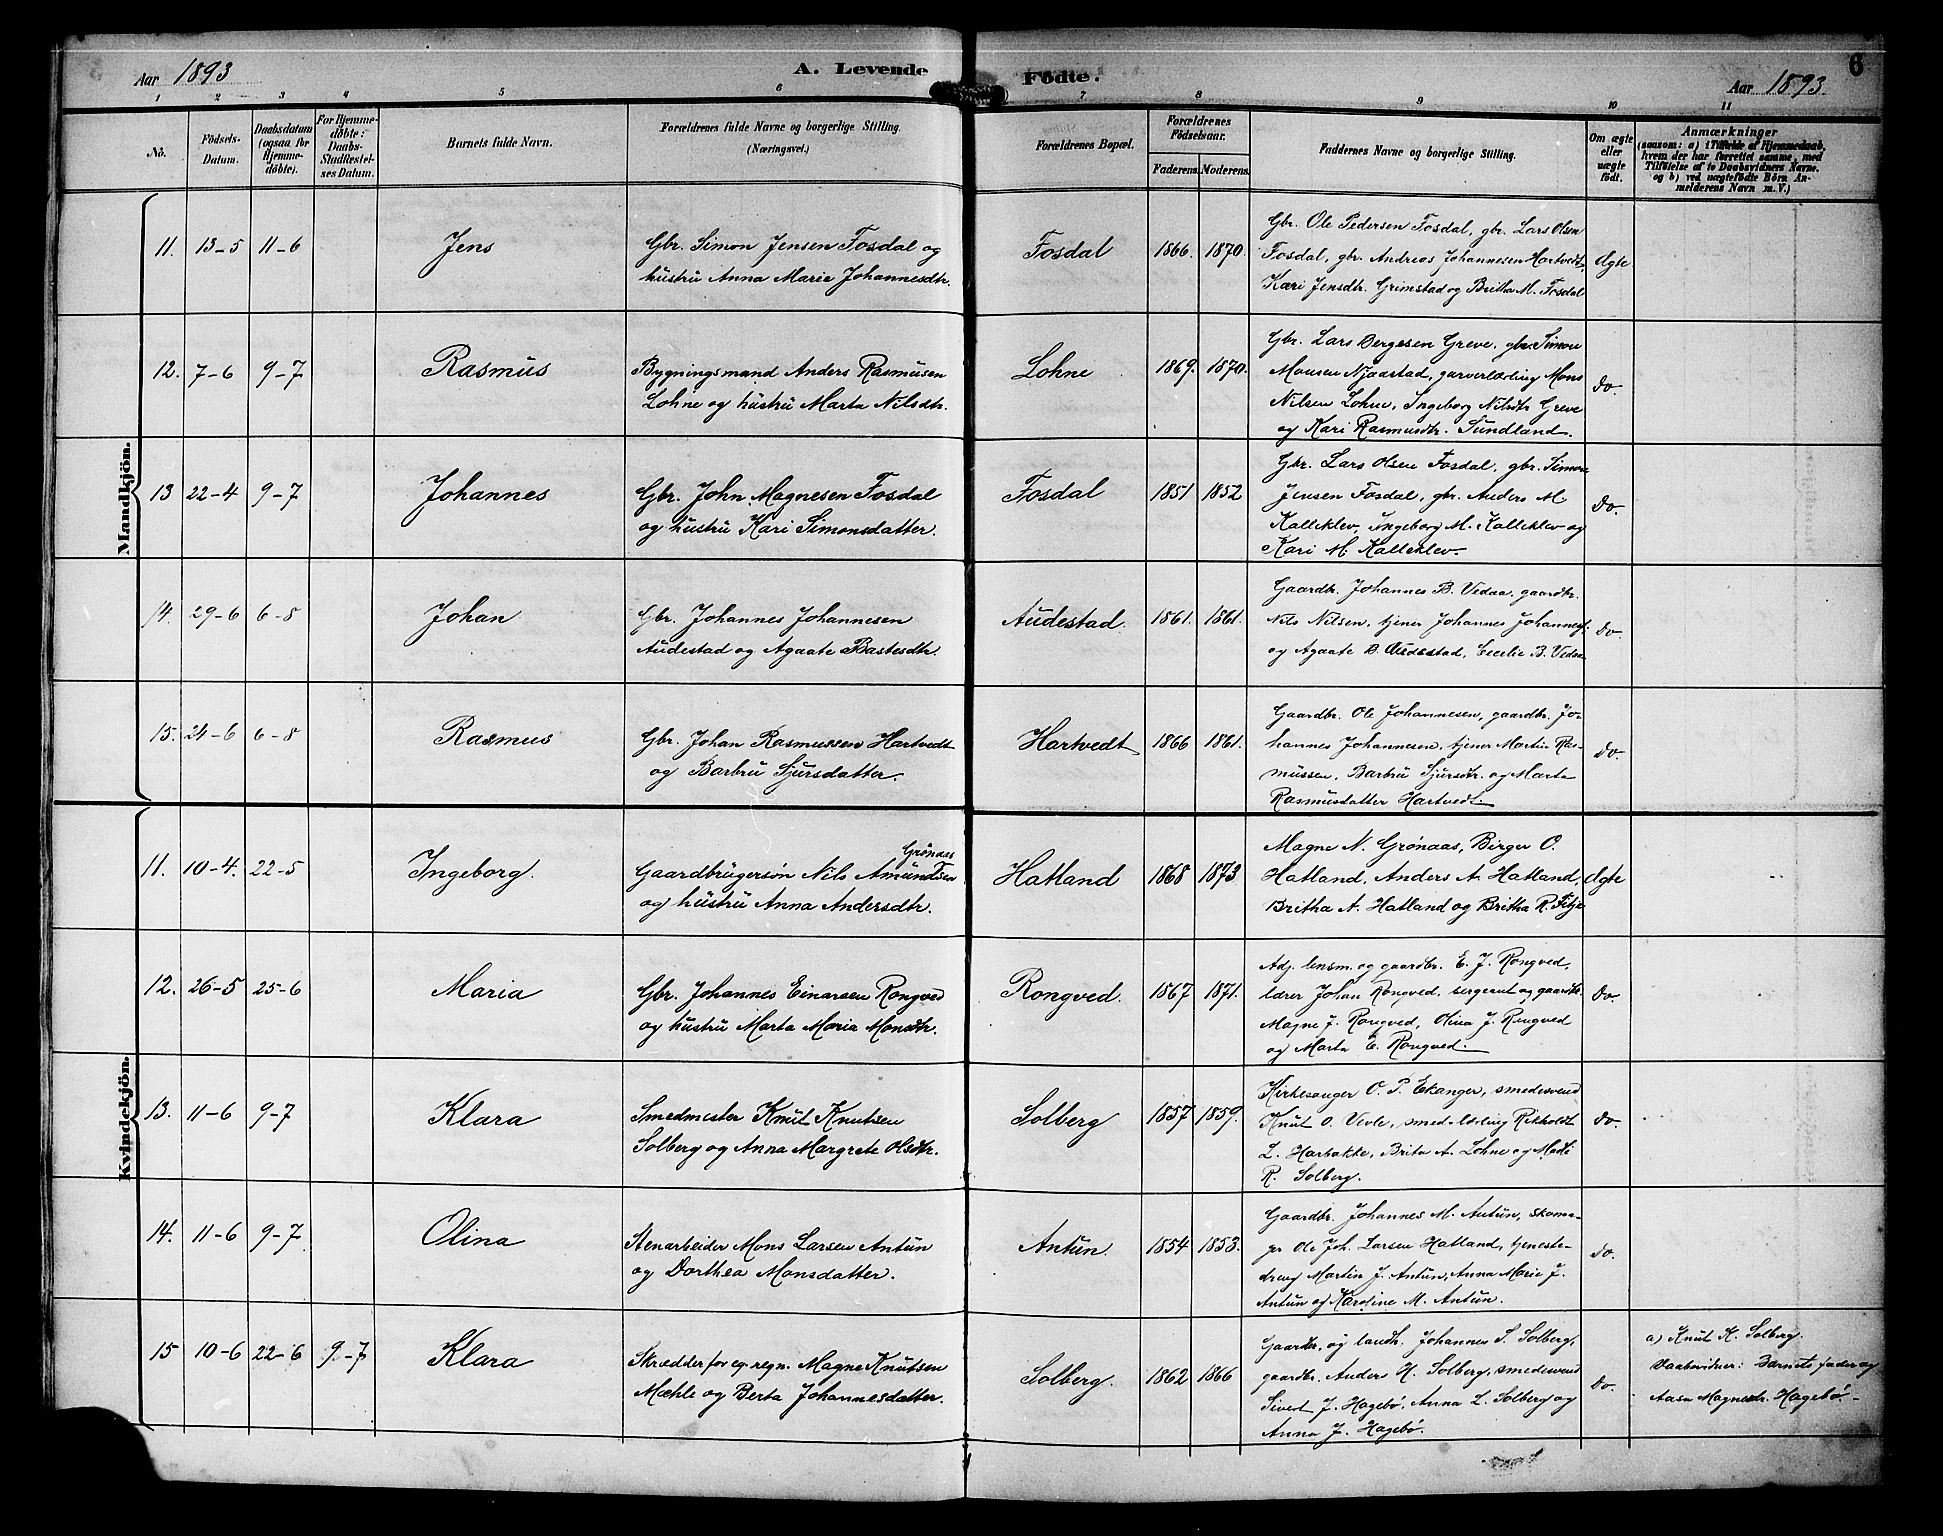 Aar 1893
A. Levende
Födte.
Aar 1893.
6
1 2 3 4 5 6 7 8 9 10 11
No.
Födsels-
Datum.
Daabsdatum
(ogsaa for
Hjemme-
døbte).
For Hjemme-
døbte:
Daabs-
Stadfæstel-
ses Datum.
Barnets fulde Navn.
Forældrenes fulde Navne og borgerlige Stilling.
(Næringsvei.)
Forældrenes Bopæl.
Forældrenes
Födselsaar.
Faderens. Moderens.
Faddernes Navne og borgerlige Stilling.
Om ægte
eller
uægte
födt.
Anmærkninger
(saasom: a) i Tilfælde af Hjemmedaab,
hvem der har forrettet samme, med
Tilføielse af to Daabsvidners Navne.
og b) ved uægtefödte Börn An-
melderens Navn m. V.)
Mandkjön.
11. 13-5 11-6 Jens
Gbr. Simon Jensen Fosdal og
hustru Anna Marie Johannesdtr.
Fosdal 1866. 1870.
Gbr. Ole Pedersen Fosdal, gbr. Lars Olsen
Fosdal, gbr. Andreas Johannesen Hartvedt,
Kari Jensdtr. Grimstad og Britha M. Fosdal
Ægte
12. 7-6 9-7 Rasmus
Bygningsmand Anders Rasmusen
Lohne og hustru Marta Nilsdtr.
Lohne 1869. 1870.
Gbr. Lars Børgesen Greve, gbr. Simon
Monsen Njaastad, garverlærling Mons
Nilsen Lohne, Ingeborg Nilsdtr Greve
og Kari Rasmusdtr. Sundland.
Do.
13 22-4 9-7 Johannes
Gbr. John Magnesen Fosdal
og hustru Kari Simonsdatter.
Fosdal 1851 1852
Gbr. Lars Olsen Fosdal, gbr. Simon
Jensen Fosdal, gbr. Anders M.
Kalleklev, Ingeborg M. Kalleklev og
Kari M. Kalleklev.
Do.
14. 29-6 6-8 Johan
Gbr. Johannes Johannesen
Audestad og Agaate Bastesdtr.
Audestad. 1861. 1861.
Gaardbr. Johannes B. Vedaa, gaardbr.
Nils Nilsen, tjener Johannes Johannes,
og Agaate B. Audestad, Cecilie B. Vedaa
Do.
15. 24-6 6-8 Rasmus
Gbr. Johan Rasmussen Hartvedt
og Barbru Sjursdatter.
Hartvedt 1866 1861.
Gaardbr. Ole Johannesen, gaardbr. Jo-
hannes Johannesen, tjener Martin Ras-
mussen, Barbru Sjursdtr. og Marta
Rasmusdatter Hartvedt.
Do.
Kvindekjön.
11. 10-4. 22-5 Ingeborg.
Grönaas
Gaardbrugersøn Nils Amundsen
og hustru Anna Andersdtr.
Hatland 1868 1873
Magne N. Grønaas, Birger O.
Hatland, Anders A. Hatland,
Britha A. Hatland og Britha R. Fitje
Ægte
12. 26-5 25-6 Maria
Gbr. Johannes Einarsen Rongved
og hustru Marta Maria Monsdtr.
Rongved. 1867 1871.
Adj. lensm. og gaardbr. E. J. Rongved,
lærer Johan Rongved, sergeant og gaardbr.
Magne J. Rongved, Olina J. Rongved
og Marta E. Rongved.
Do.
13. 11-6 9-7 Klara
Smedmester Knut Knutsen
Solberg og Anna Margrete Olsdtr.
Solberg 1857 1859.
Kirkesanger O. P. Ekanger, smedesvend
Knut O. Vevle, smedlærling Rikholdt
L. Harbakke, Brita A. Lohne og Madi
R. Solberg.
Do.
14. 11-6 9-7 Olina
Stenarbeider Mons Larsen Antun
og Dorthea Monsdatter.
Antun. 1854 1853.
Gaardbr. Johannes M. Antun, skoma-
ger Ole Joh. Larsen Hatland, tjeneste-
dreng Martin J. Antun, Anna Marie J.
Antun og Karoline M. Antun.
Do.
15 10-6 22-6 9-7 Klara
Skrædder for eg. regn. Magne Knutsen
Mæhle og Berta Johannesdatter.
Solberg. 1862 1866
Gaardbr. og landh. Johannes S. Solberg,
gaardbr. Anders H. Solberg, smedesvend
Sivert J. Hagebø, Anna L. Solberg og
Anna J. Hagebø.
Do.
a) Knut K. Solberg.
Daabsvidner: Barnets fader og
Aasa Magnesdtr. Hagebø.